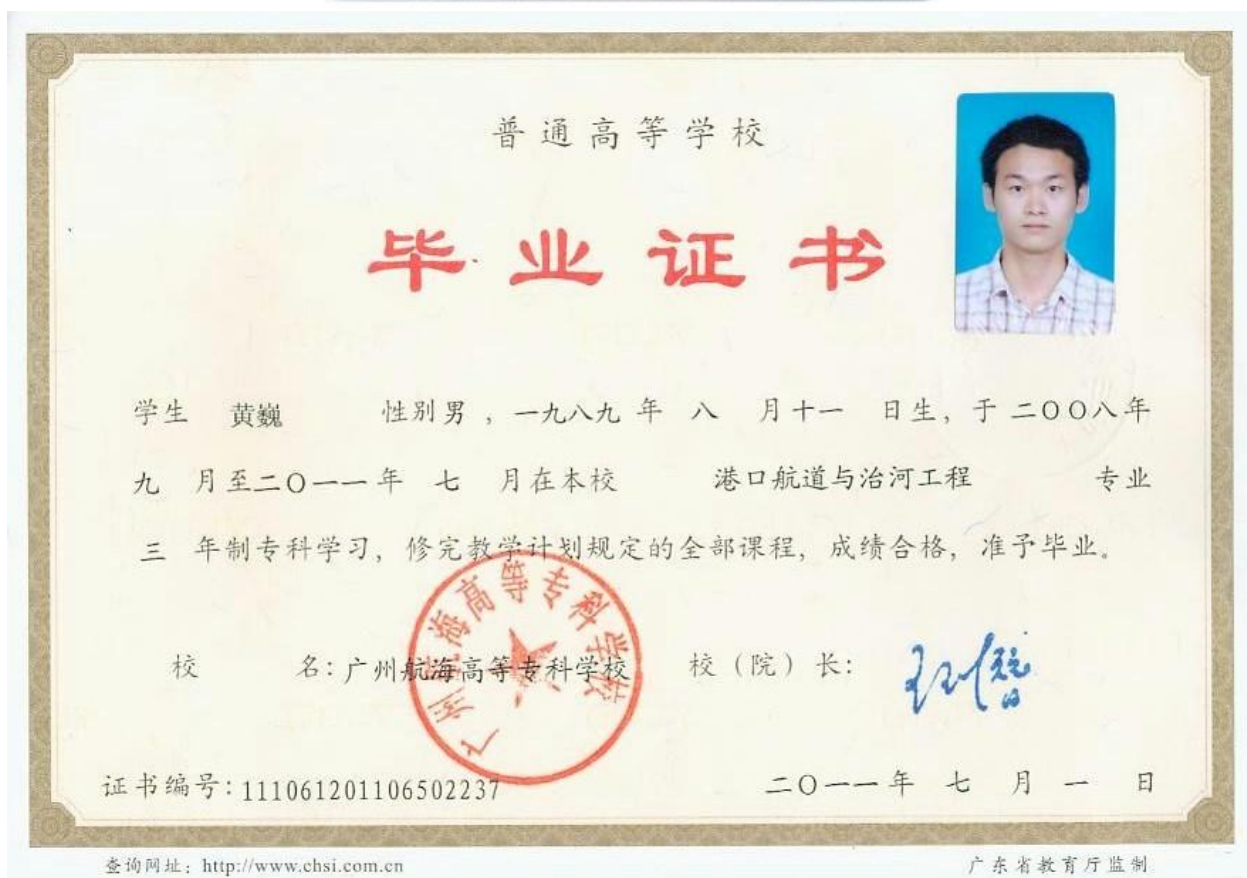 普通高等学校
毕业证书
学生 黄巍 性别男，一九八九年 八 月十一 日生，于二〇〇八年
九 月至二〇一一年 七 月在本校 港口航道与治河工程 专业
三 年制专科学习，修完教学计划规定的全部课程，成绩合格，准予毕业。
校 名：广州航海高等专科学校 校（院）长：
广州航海高等专科学校
证书编号：111061201106502237 二〇一一年 七 月 一 日
查询网址：http://www.chsi.com.cn 广东省教育厅监制